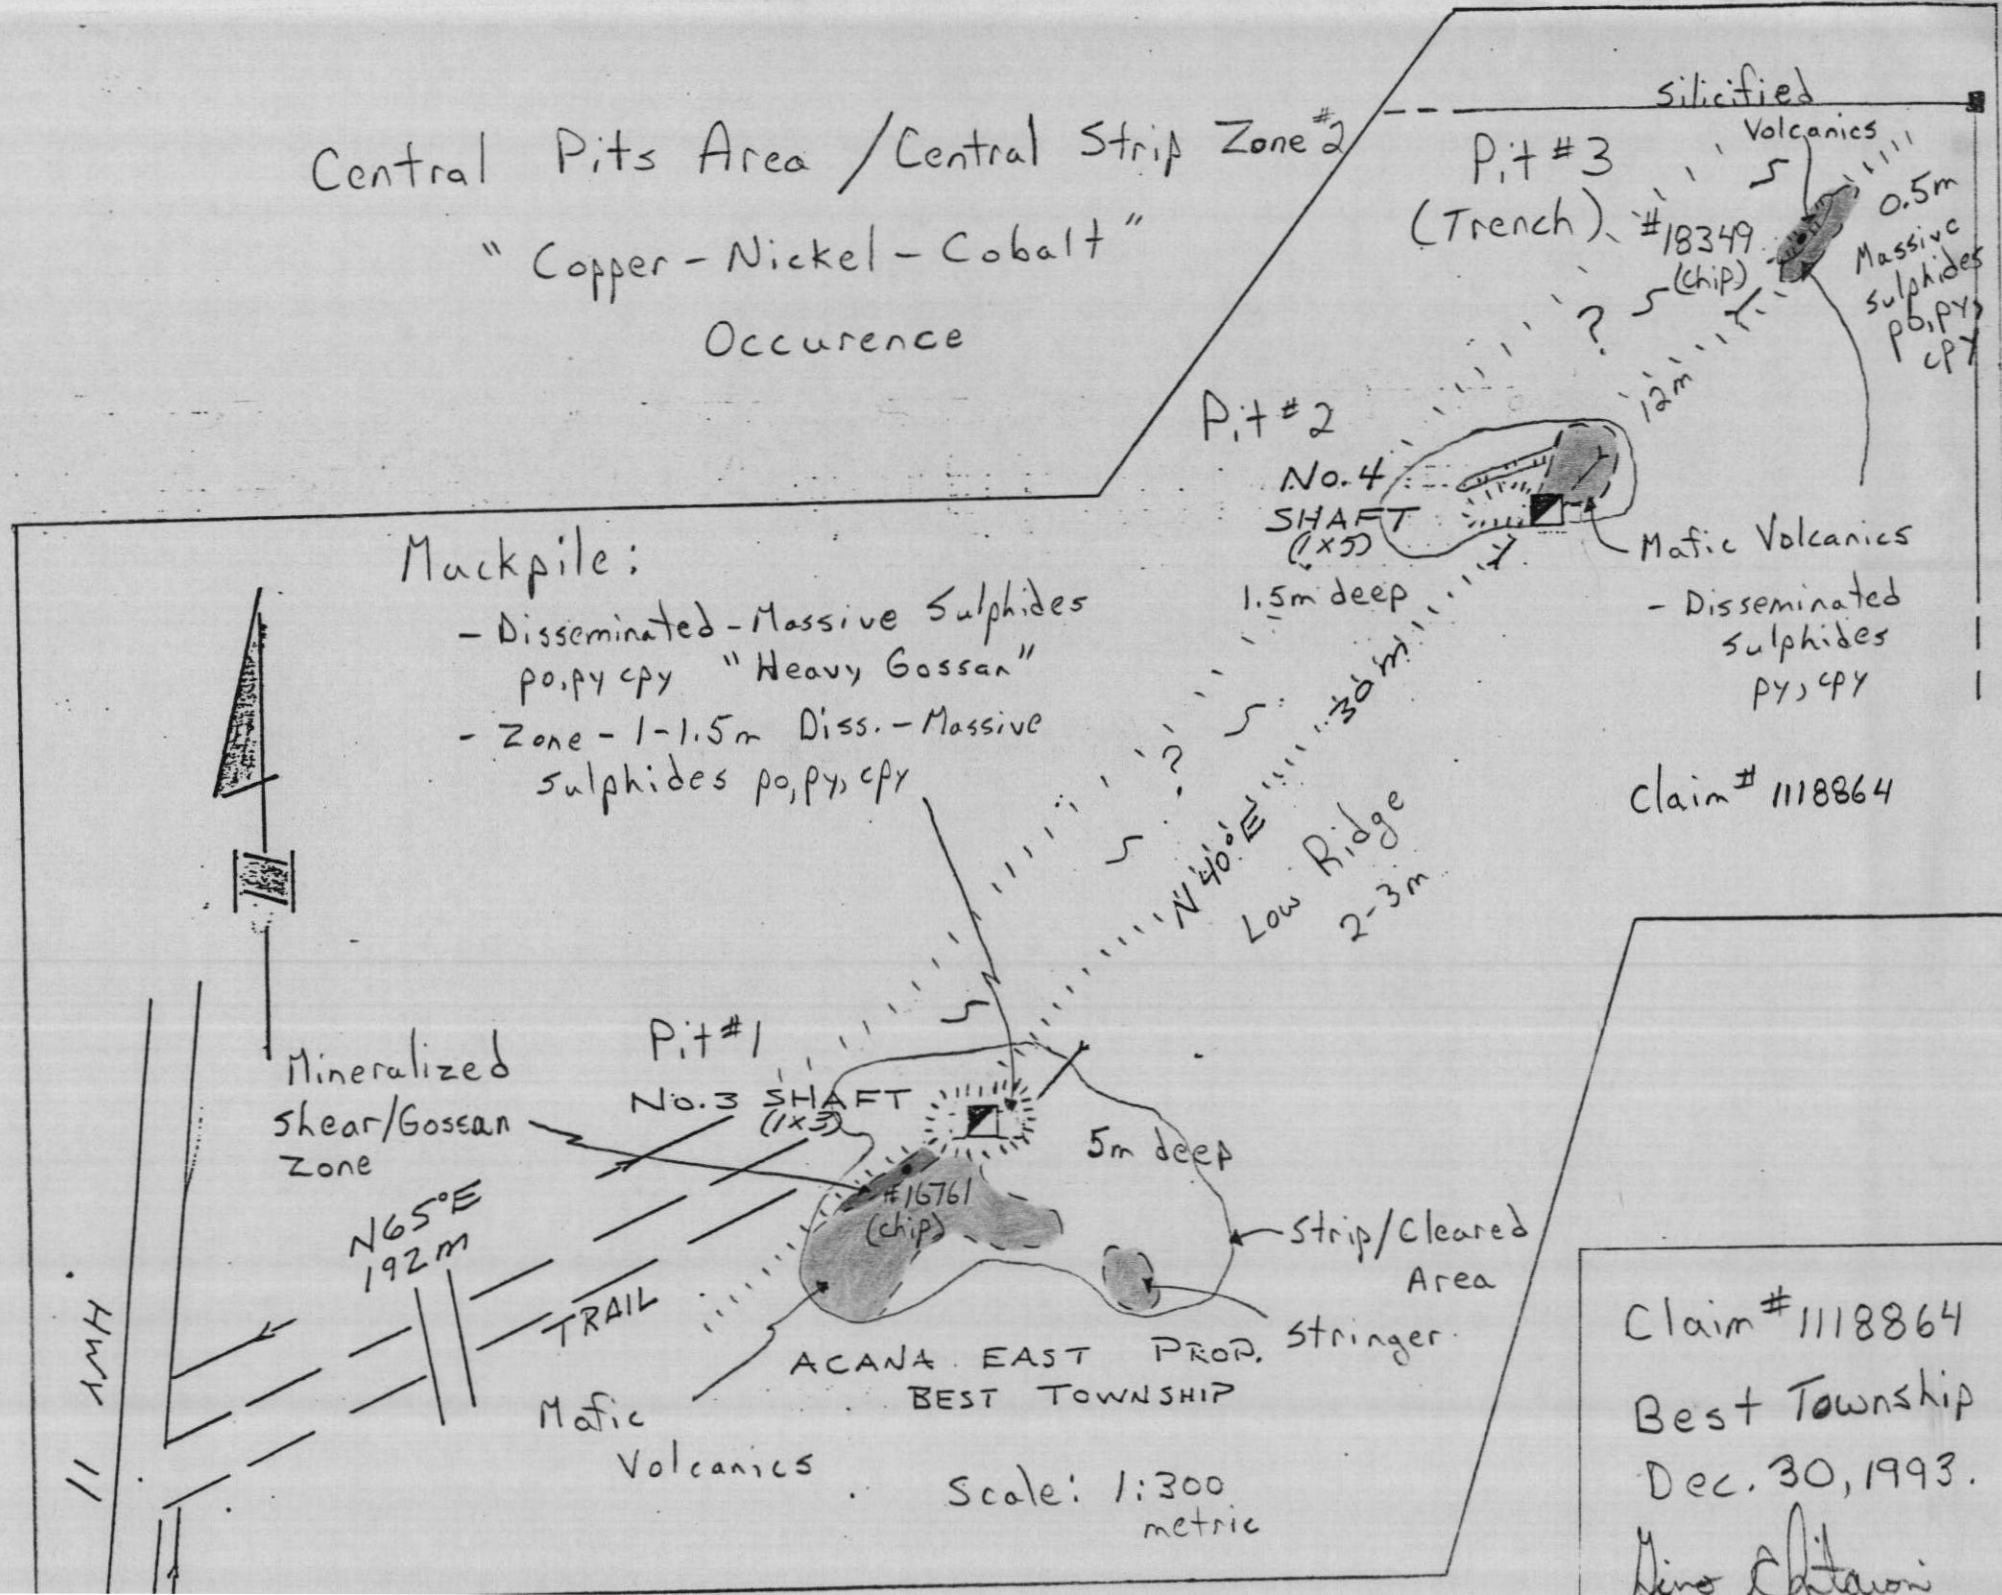 Central Pits Area / Central Strip Zone #2
"Copper - Nickel - Cobalt"
Occurence
Silicified
Volcanics
Pit #3
(Trench)
#18349
(chip)
0.5m
Massive
sulphides
po, py,
cpy
?
12m
Pit #2
No. 4
SHAFT
(1x5)
1.5m deep
Mafic Volcanics
- Disseminated
sulphides
py, cpy
Claim # 1118864
Muckpile:
- Disseminated - Massive Sulphides
po, py cpy "Heavy Gossan"
- Zone - 1-1.5m Diss. - Massive
sulphides po, py, cpy
30m
?
N40°E
Low Ridge
2-3m
Pit #1
No. 3 SHAFT
(1x3)
5m deep
Mineralized
Shear/Gossan
Zone
#16761
(chip)
N65°E
192m
TRAIL
HWY
11
Strip/Cleared
Area
Stringer
Mafic
Volcanics
ACANA EAST PROP.
BEST TOWNSHIP
Scale: 1:300
metric
Claim # 1118864
Best Township
Dec. 30, 1993.
Gino Chitaroni